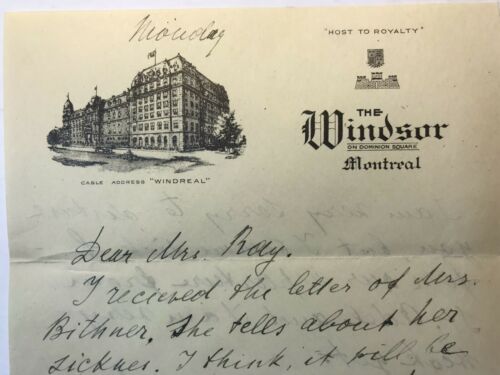 Monday
"HOST TO ROYALTY"
THE
Windsor
ON DOMINION SQUARE
Montreal
CABLE ADDRESS "WINDREAL"
Dear Mrs. Ray.
I recieved the letter of Mrs.
Bithner. She tells about her
sicknes. I think, it will be